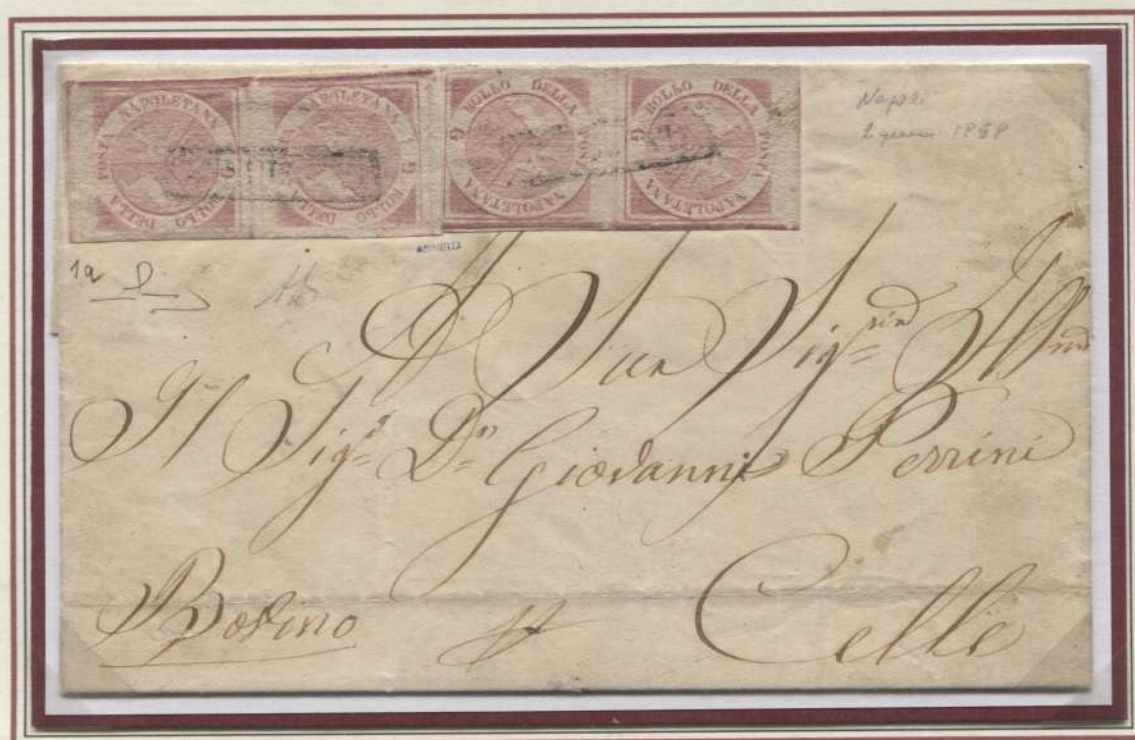 BOLLO DELLA POSTA NAPOLETANA G
BOLLO DELLA POSTA NAPOLETANA G
BOLLO DELLA POSTA NAPOLETANA G
BOLLO DELLA POSTA NAPOLETANA G
Napoli
2 1858
1a
A Sua Sigria Illma
Il Sigr Dn Giovanni Perrini
Bovino
Celle